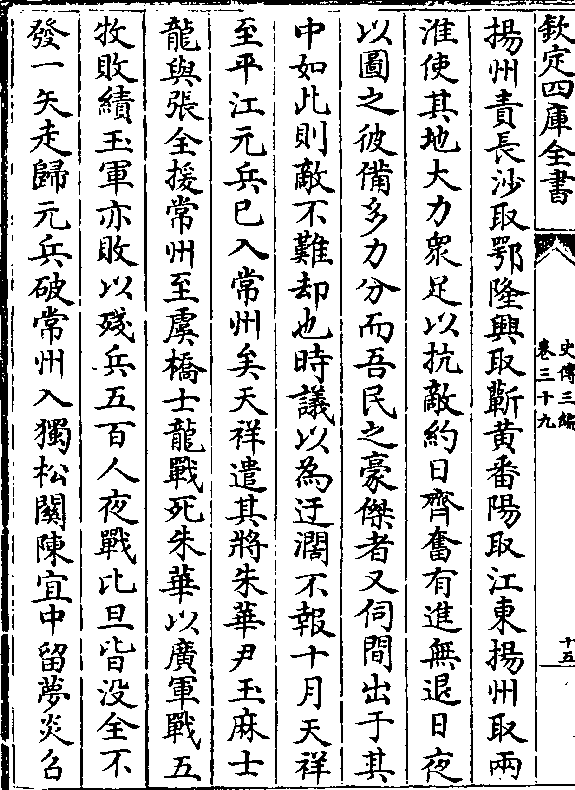 欽定四庫全書
史傳三編
卷三十九
十五
揚州責長沙取鄂隆興取蘄黃番陽取江東揚州取兩
淮使其地大力衆足以抗敵約日齊奮有進無退日夜
以圖之彼備多力分而吾民之豪傑者又伺間出于其
中如此則敵不難却也時議以為迂濶不報十月天祥
至平江元兵已入常州矣天祥遣其將朱華尹玉麻士
龍與張全援常州至虞橋士龍戰死朱華以廣軍戰五
牧敗績玉軍亦敗以殘兵五百人夜戰比旦皆没全不
發一矢走歸元兵破常州入獨松關陳宜中留夢炎召